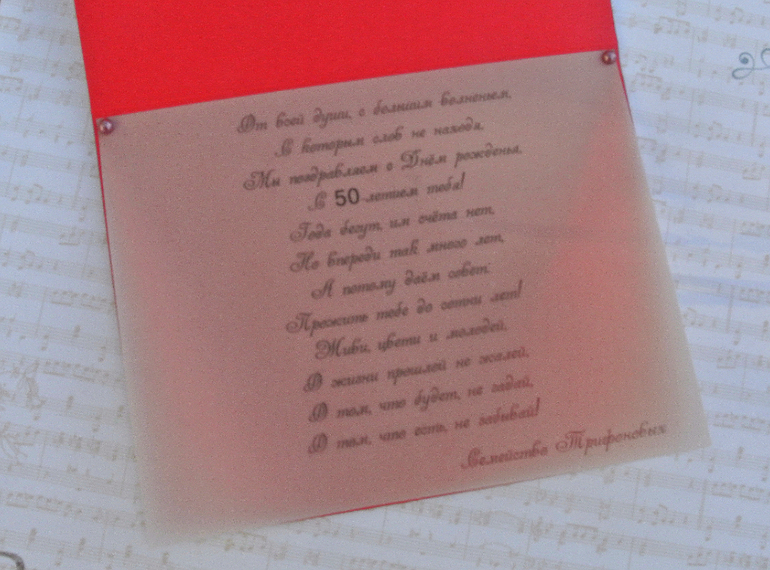 От всей души, с большим волненьем,
С которым слов не находя,
Мы поздравляем с Днём рожденья,
С 50-летием тебя!
Года бегут, им счёта нет,
Но впереди так много лет,
А потому даём совет:
Прожить тебе до сотни лет!
Живи, цвети и молодей,
О жизни прошлой не жалей,
О том, что будет, не гадай,
О том, что есть, не забывай!
Семейство Трифоновых